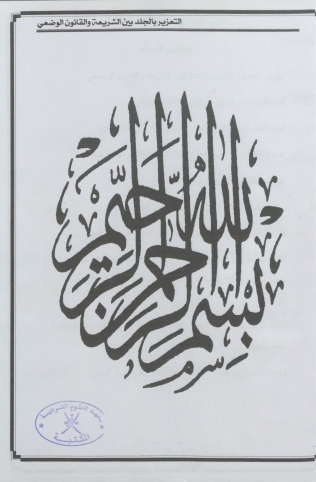 التعزير بالجلد بين الشريعة والقانون الوضعي
بسم الله الرحمن الرحيم
معهد العلوم الشرعية
المكتبة